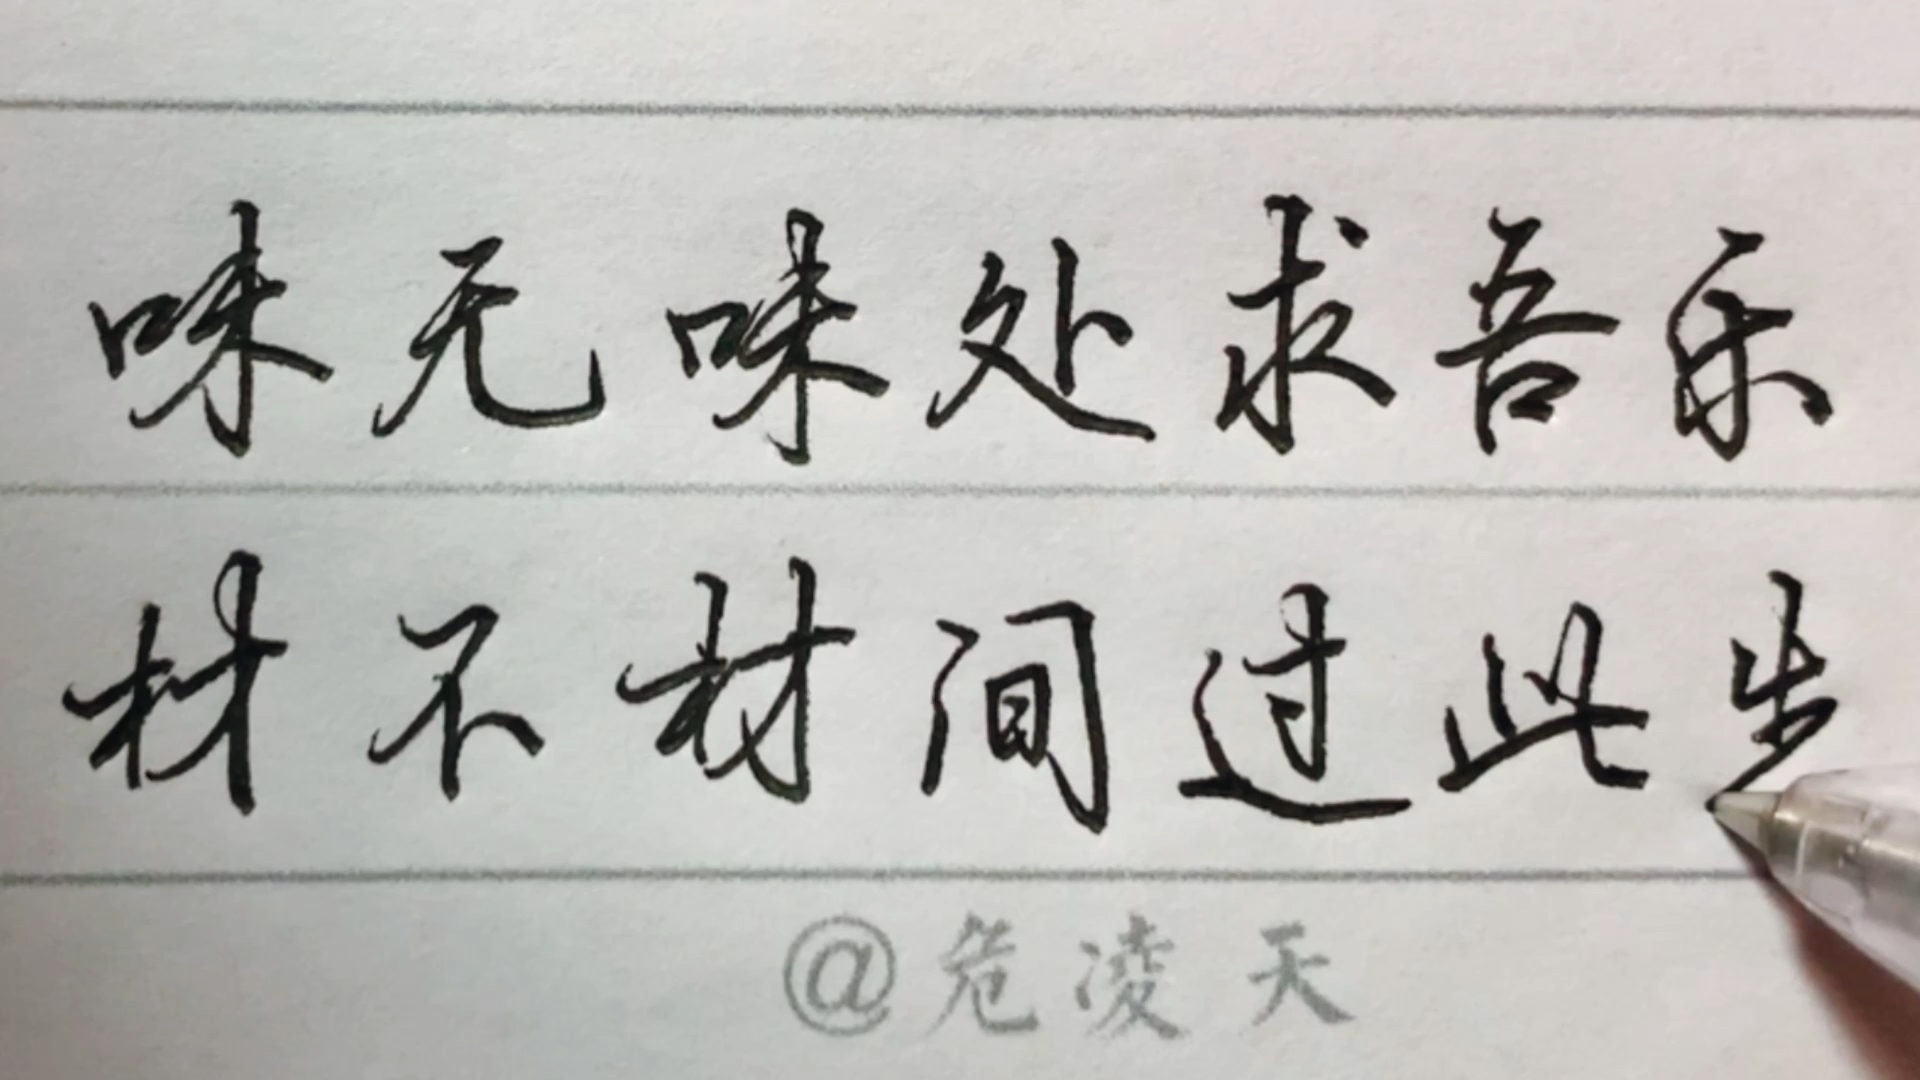 味无味处求吾乐
材不材间过此生
@危凌天